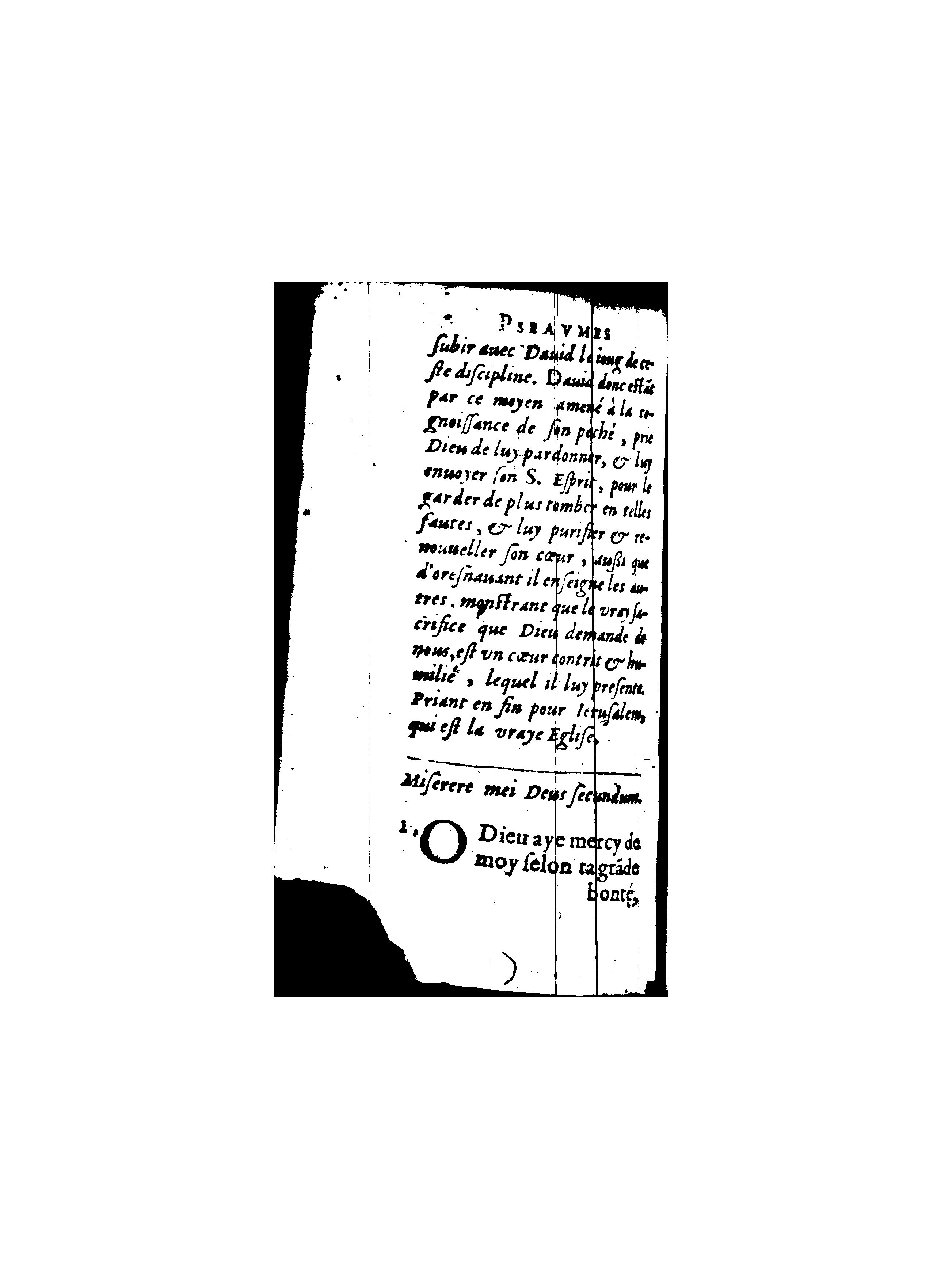 PSEAVMES
ſubir auec Dauid le ioug de ce-
ſte diſcipline. Dauid donc eſtāt
par ce moyen amené à la co-
gnoiſſance de ſon peché, prie
Dieu de luy pardonner, & luy
enuoyer ſon S. Eſprit, pour le
garder de plus tomber en telles
fautes, & luy purifier & re-
nouueller ſon cœur, auſsi que
d'oreſnauant il enſeigne les au-
tres. monſtrant que le vray ſa-
crifice que Dieu demande de
nous, eſt vn cœur contrit & hu-
milié, lequel il luy preſente.
Priant en fin pour Ieruſalem,
qui eſt la vraye Egliſe.
Miſerere mei Deus ſecundum.
1. O Dieu aye mercy de
moy ſelon ta grāde
bonté,